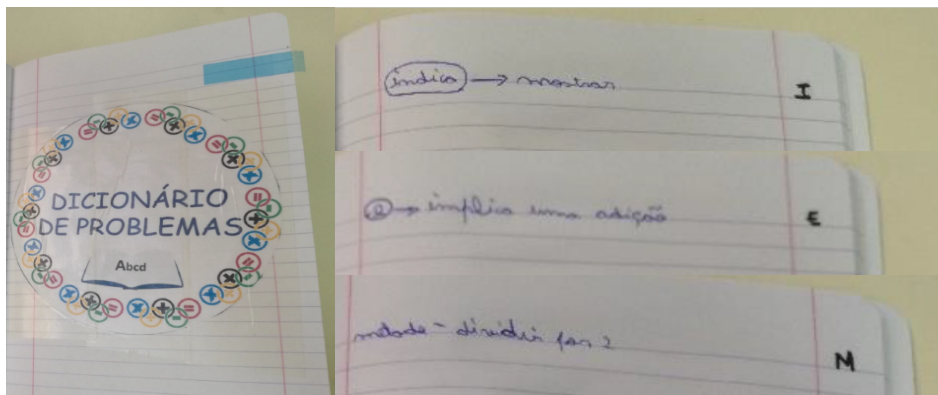 DICIONÁRIO
DE PROBLEMAS
Abcd
indica → mostrar
I
e → implica uma adição
E
metade - dividir por 2
M